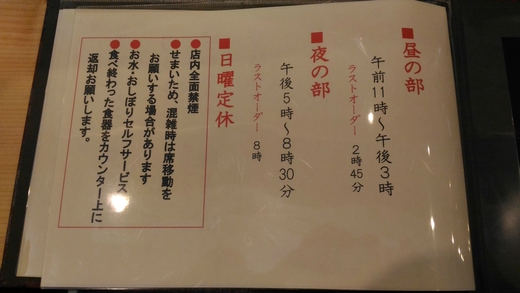 ■昼の部
午前11時～午後3時
ラストオーダー 2時45分
■夜の部
午後5時～8時30分
ラストオーダー 8時
■日曜定休
●店内全面禁煙
●せまいため、混雑時は席移動を
お願いする場合があります
●お水・おしぼりセルフサービス
●食べ終わった食器をカウンター上に
返却お願いします。